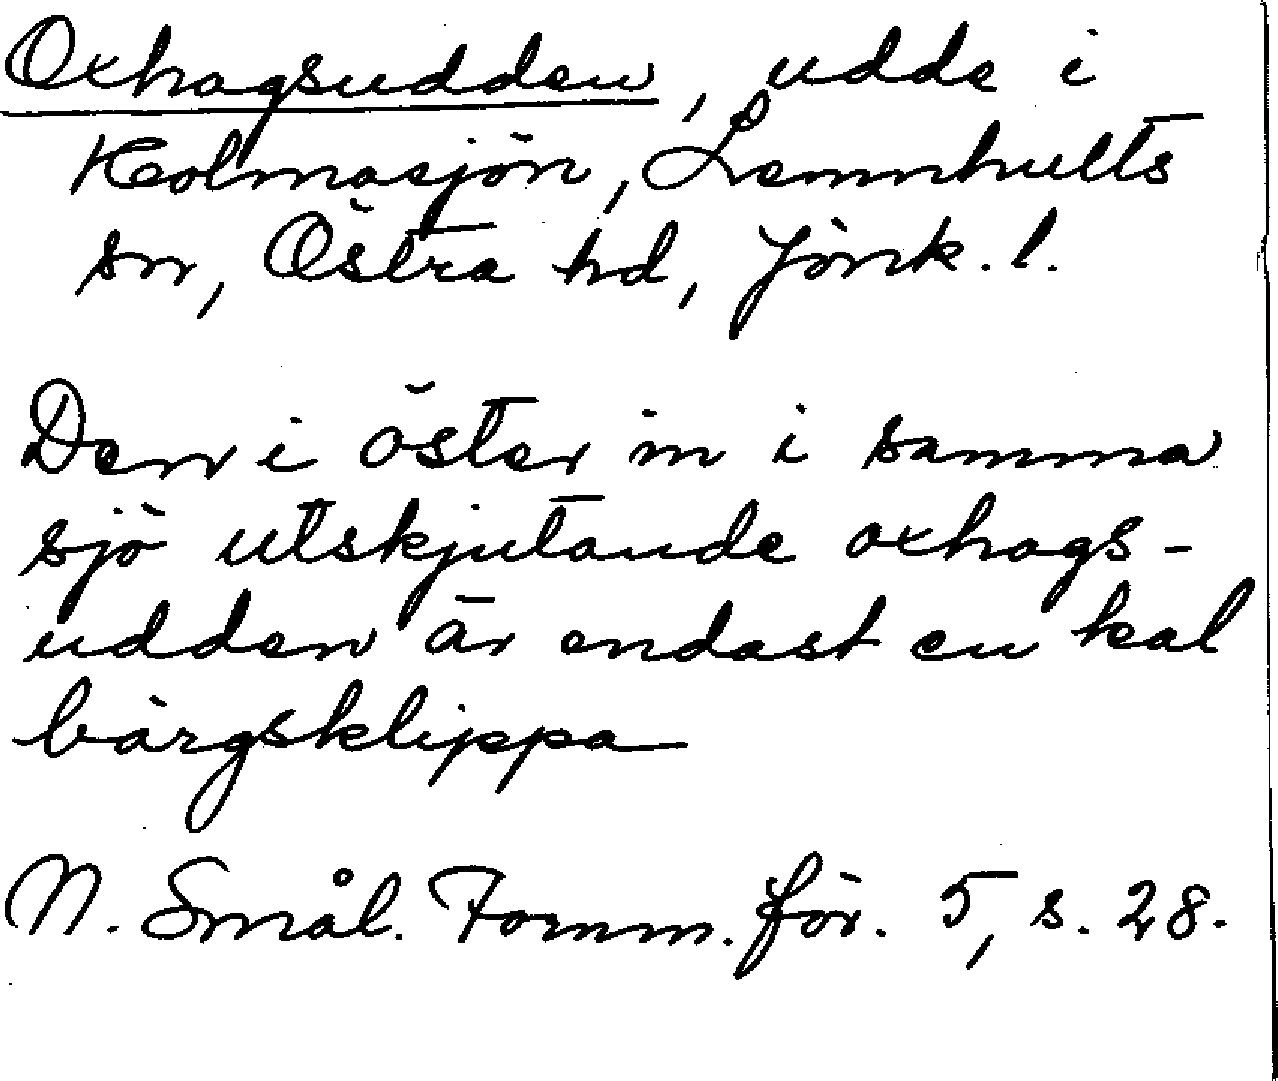 Oxhagsudden, udde i
Kolmasjön, Lemnhults
sn, Östra hd, Jönk. l.
Den i öster in i samma
sjö utskjutande oxhags-
udden är endast en kal
bärgsklippa
N. Smål. Fornm. för. 5, s. 28.